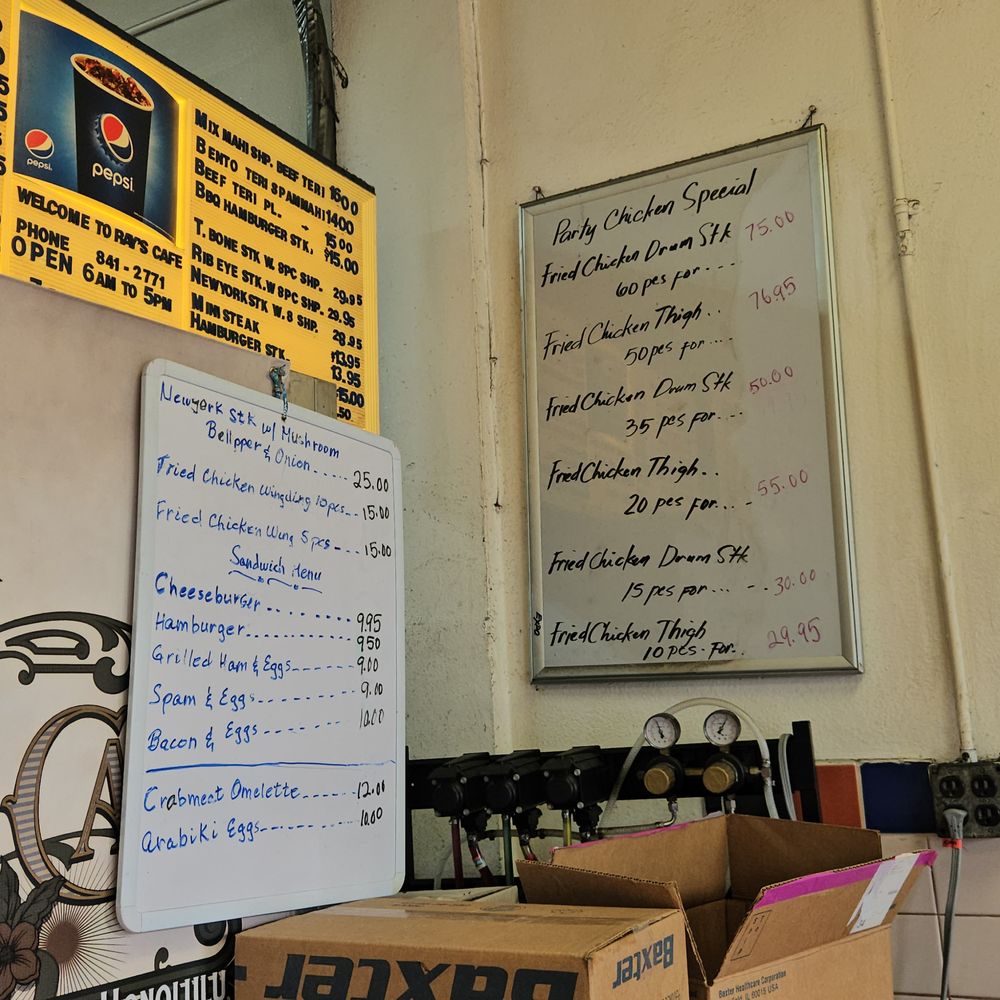 pepsi.
pepsi.
WELCOME TO RAY'S CAFE
PHONE 841-2771
OPEN 6AM TO 5PM
MIX MAHI SHP. BEEF TERI 16.00
BENTO TERI SPAM MAHI 14.00
BEEF TERI PL. - 15.00
BBQ HAMBURGER STK, $15.00
T. BONE STK W. 8PC SHP. 29.95
RIB EYE STK. W 8PC SHP. 29.95
NEWYORK STK W. 8 SHP. 28.95
MINI STEAK $13.95
HAMBURGER STK. 13.95
15.00
.50
Newyork Stk w/ Mushroom
Bellpper & Onion .... 25.00
Fried Chicken Wingding 10pcs-- 15.00
Fried Chicken Wing 5 pcs --- 15.00
Sandwich Menu
Cheeseburger ........ 9.95
Hamburger........... 9.50
Grilled Ham & Eggs------ 9.00
Spam & Eggs ------ 9.00
Bacon & Eggs ----- 10.00
Crabmeat Omelette------12.00
Arabiki Eggs-------- 10.00
Party Chicken Special
Fried Chicken Drum Stk 75.00
60 pes for - - - -
Fried Chicken Thigh . . 76.95
50 pes for ... --
Fried Chicken Drum Stk 50.00
35 pes for. ---
Fried Chicken Thigh . .
20 pes for... - 55.00
Fried Chicken Drum Stk
15 pes for... - - - 30.00
Fried Chicken Thigh
10 pes - for. . 29.95
EXPO
CA
Baxter
Baxter
Baxter Healthcare Corporation
IL 60015 USA